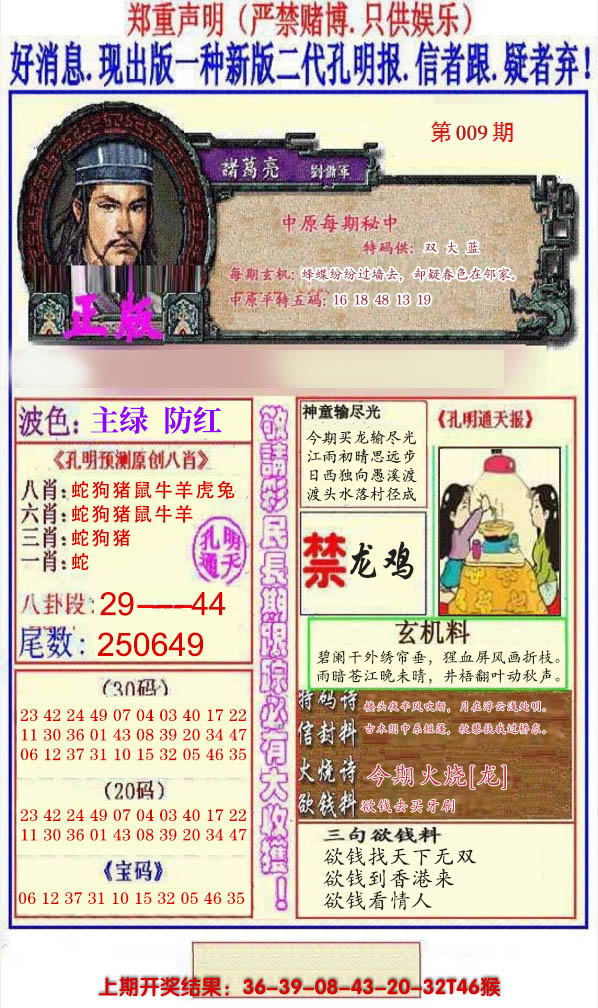 郑重声明（严禁赌博.只供娱乐）
好消息.现出版一种新版二代孔明报.信者跟.疑者弃!
第009期
諸葛亮 劉備軍
中原每期秘中
特码供：双大蓝
每期玄机：蜂蝶纷纷过墙去，却疑春色在邻家。
中原平特五码：16 18 48 13 19
正版
波色：主绿 防红
《孔明预测原创八肖》
八肖：蛇狗猪鼠牛羊虎兔
六肖：蛇狗猪鼠牛羊
三肖：蛇狗猪
一肖：蛇
孔明通天
八卦段：29----44
尾数：250649
（30码）
23 42 24 49 07 04 03 40 17 22
11 30 36 01 43 08 39 20 34 47
06 12 37 31 10 15 32 05 46 35
（20码）
23 42 24 49 07 04 03 40 17 22
11 30 36 01 43 08 39 20 34 47
《宝码》
06 12 37 31 10 15 32 05 46 35
敬請彩民長期跟踪必有大收獲！
神童输尽光
今期买龙输尽光
江雨初晴思远步
日西独向愚溪渡
渡头水落村径成
《孔明通天报》
禁龙鸡
玄机料
碧阑干外绣帘垂，猩血屏风画折枝。
雨暗苍江晚未晴，井梧翻叶动秋声。
特码诗 楼头夜半风吹断，月在浮云浅处明。
信封料 古木阴中系短篷，杖藜扶我过桥东。
火烧诗 今期火烧[龙]
欲钱料 欲钱去买牙刷
三句欲钱料
欲钱找天下无双
欲钱到香港来
欲钱看情人
上期开奖结果：36-39-08-43-20-32T46猴